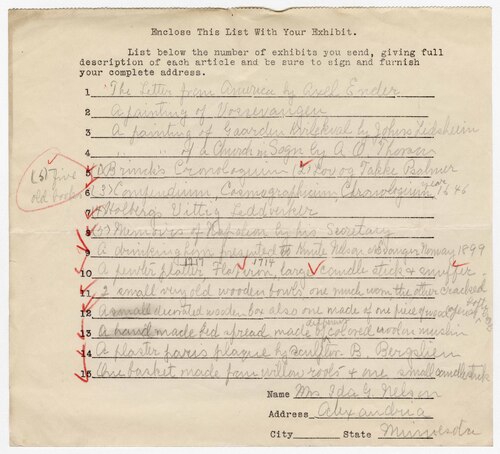 Enclose This List With Your Exhibit.
List below the number of exhibits you send, giving full
description of each article and be sure to sign and furnish
your complete address.
1 The Letter from America by Axel Ender
2 A painting of Vossevangen
3 A painting of Gaarden by Johns
4 " of a Church in Sogn by A. O. Thorsen
(5) Five old books
5 (1) Brinck's Cronologium (2) Lov og Takke Psalmer
6 (3) Compendium, Cosmographicum Chronologium, 1646
7 (4) Holbergs Vittig
8 (5) Memoirs of Napoleon by his Secretary
9 A drinking horn presented to Knute Nelson Stavanger Norway 1899
1717 1714
10 A pewter platter Flat iron, large candle stick & snuffer
11 2 small very old wooden bowls one much worn the other cracked
12 A small decorated wooden box also one made of one piece of wood
different
13 A hand made bed spread made by colored woolen
14 A plaster paris plaque by sculptor B. Bergslien
15 One basket made from willow roots & one small candlestick
Name Mrs Ida G. Nelson
Address Alexandria
City State Minnesota